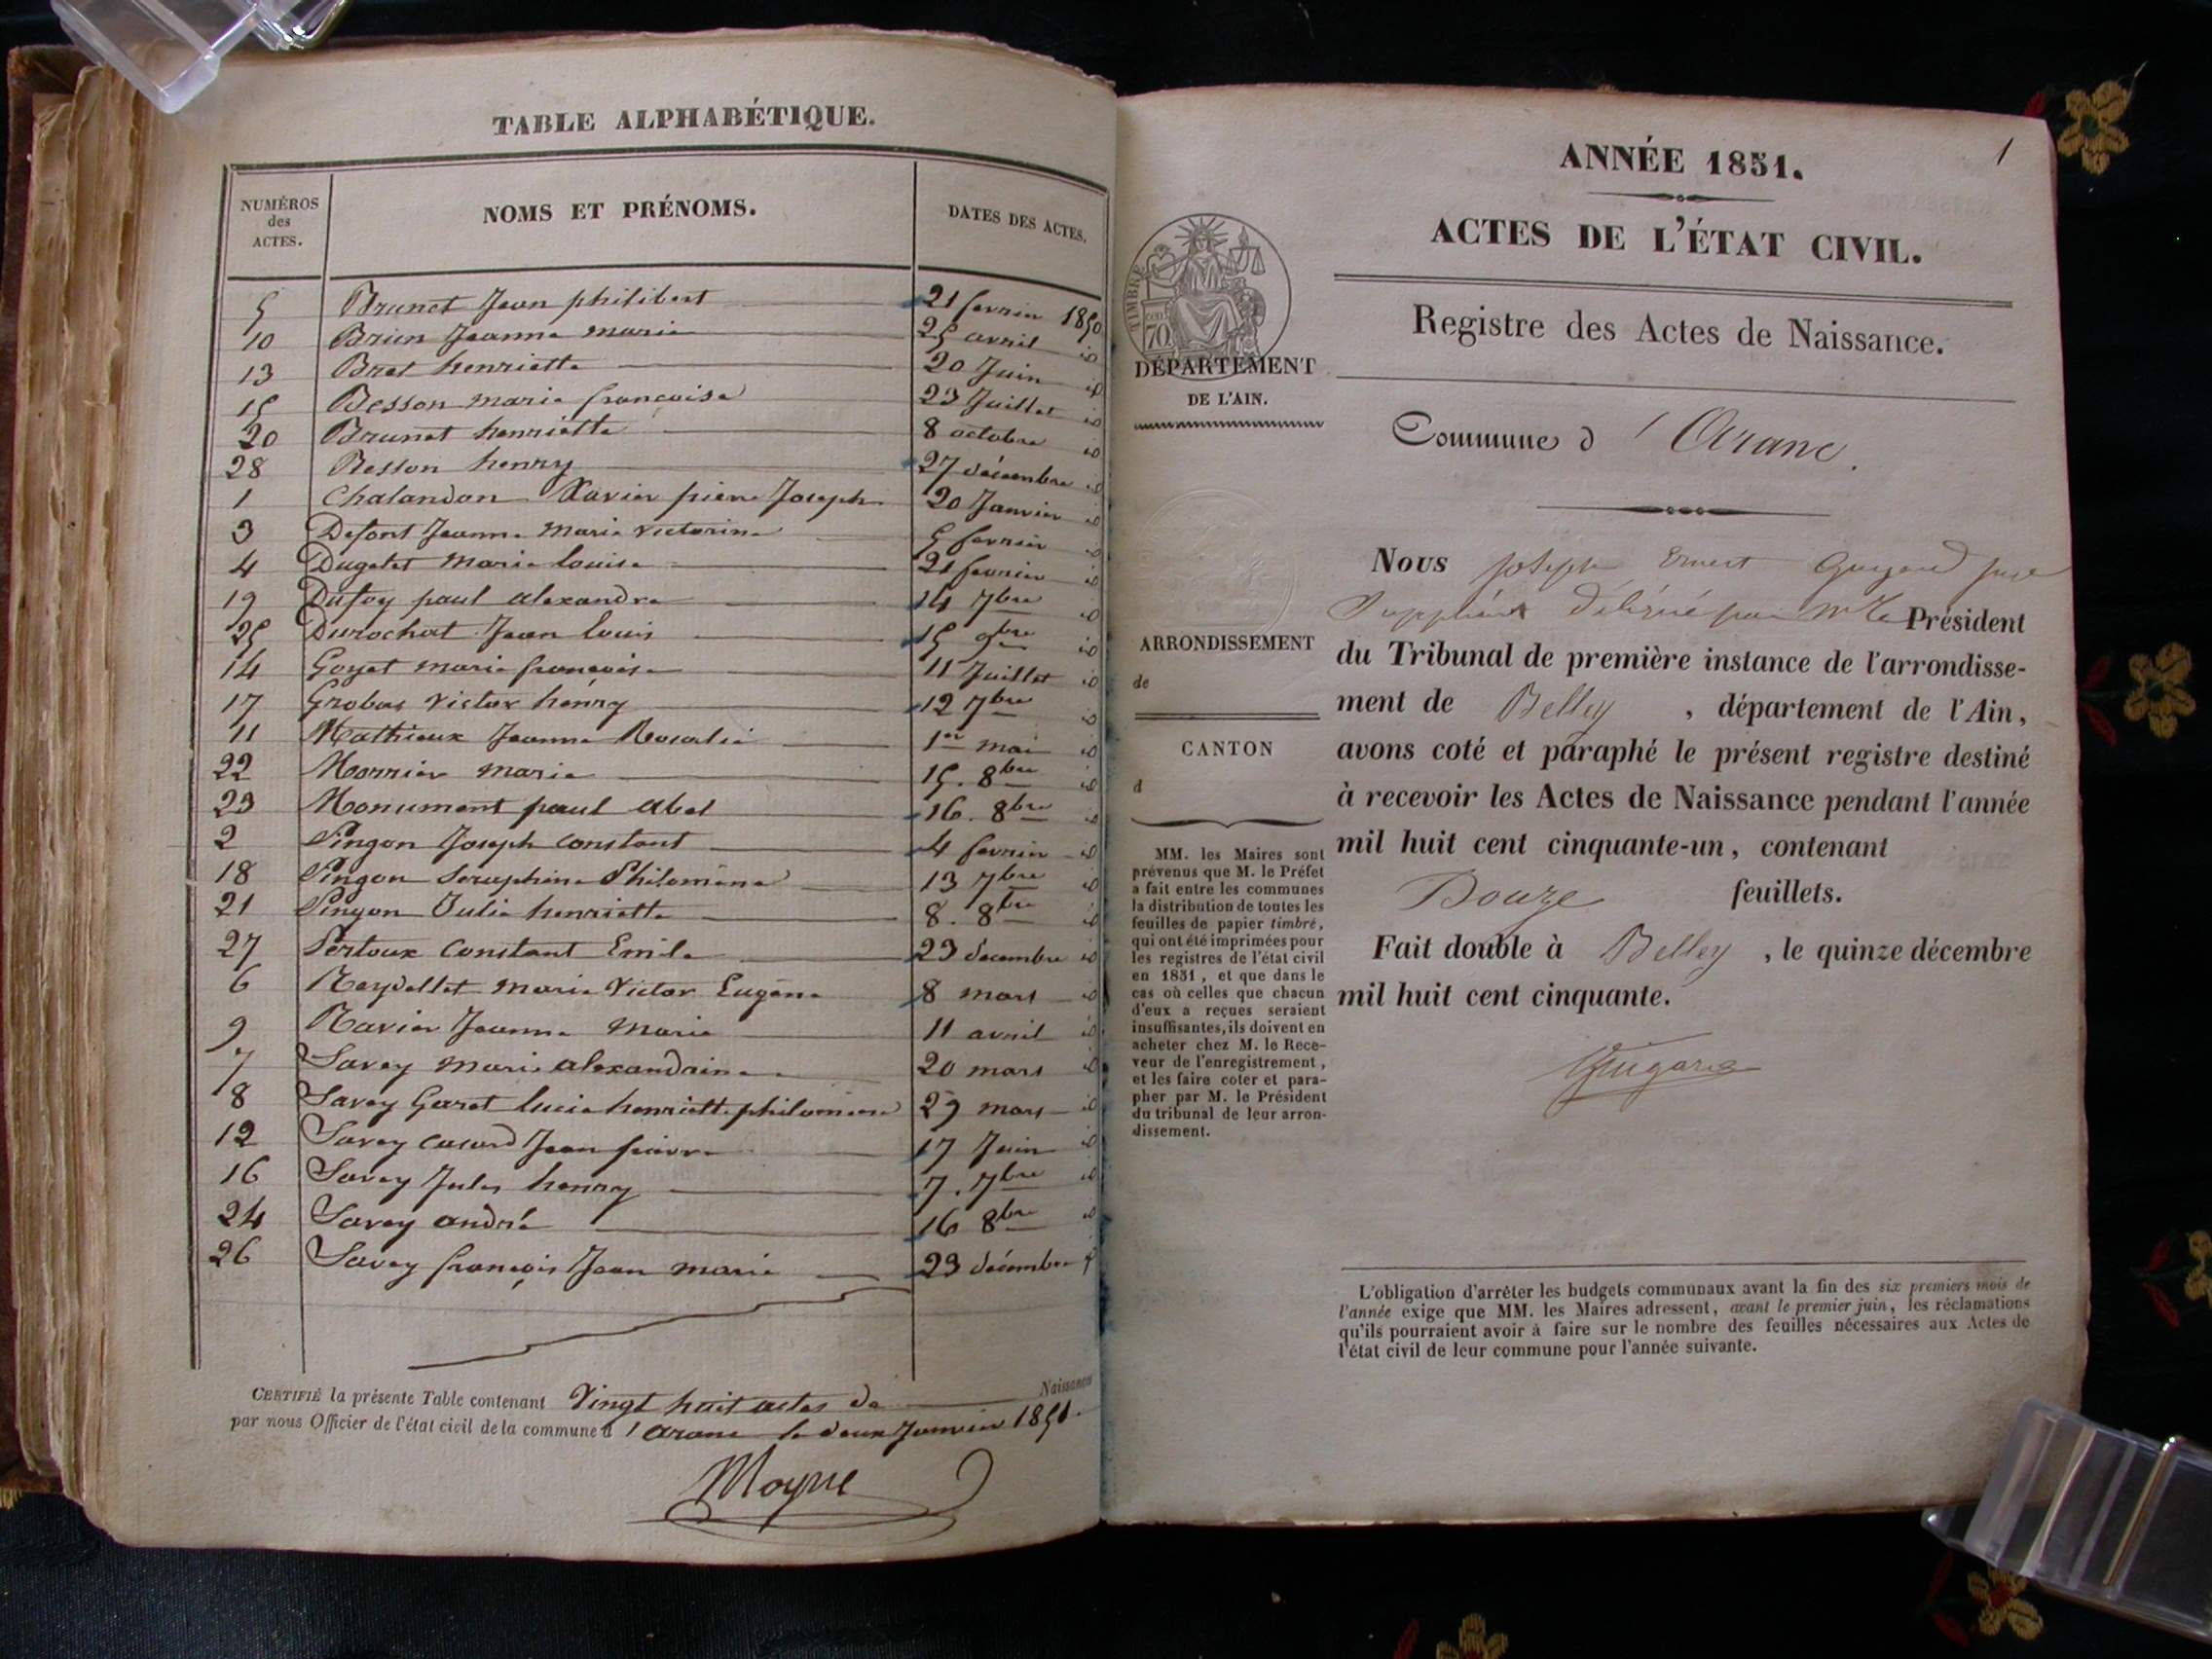 TABLE ALPHABÉTIQUE.
NUMÉROS des ACTES. NOMS ET PRÉNOMS. DATES DES ACTES.
5 Brunet Jean philibert 21 fevrier 1850
10 Brun Jeanne marie 25 avril id
13 Bret henriette 20 Juin id
15 Besson marie francoise 23 Juillet id
20 Brunet henriette 8 octobre id
28 Besson henry 27 décembre id
1 Chalandon Xavier pierre Joseph 20 Janvier id
3 Defont Jeanne Marie victorine 5 fevrier id
4 Dugetet Marie louise 21 fevrier id
19 Dufoy paul alexandre 14 7bre id
25 Durochat Jean louis 15 9bre id
14 Goyet marie francoise 11 Juillet id
17 Grobas victor henry 12 7bre id
11 Mathieux Jeanne Rosalie 1er mai id
22 Morrier marie 15. 8bre id
23 Monument paul abel 16. 8bre id
2 Pingon Joseph constant 4 fevrier id
18 Pingon Seraphine Philomène 13 7bre id
21 Pingon Julie henriette 8. 8bre id
27 Pertoux Constant Emile 23 decembre id
6 Reydellet marie Victor Eugène 8 mars id
9 Ravier Jeanne Marie 11 avril id
7 Savey marie alexandrine 20 mars id
8 Savey Garet lucie henriette philomène 29 mars id
12 Savey casard Jean pierre 17 Juin id
16 Savey Jules henry 7. 7bre id
24 Savey andré 16 8bre id
26 Savey françois Jean marie 23 décembre
CERTIFIÉ la présente Table contenant Vingt huit actes de Naissances
par nous Officier de l'état civil de la commune d'arane le deux Janvier 1851.
Moyne
1
ANNÉE 1851.
ACTES DE L'ÉTAT CIVIL.
Registre des Actes de Naissance.
TIMBRE
70
DÉPARTEMENT
DE L'AIN.
Commune d'Aranc.
ARRONDISSEMENT
de
CANTON
d
MM. les Maires sont
prévenus que M. le Préfet
a fait entre les communes
la distribution de toutes les
feuilles de papier timbré,
qui ont été imprimées pour
les registres de l'état civil
en 1851, et que dans le
cas où celles que chacun
d'eux a reçues seraient
insuffisantes, ils doivent en
acheter chez M. le Rece-
veur de l'enregistrement,
et les faire coter et para-
pher par M. le Président
du tribunal de leur arron-
dissement.
Nous Joseph Ernest juge
Suppléant Délégué par Mr le Président
du Tribunal de première instance de l'arrondisse-
ment de Belley, département de l'Ain,
avons coté et paraphé le présent registre destiné
à recevoir les Actes de Naissance pendant l'année
mil huit cent cinquante-un, contenant
Douze feuillets.
Fait double à Belley, le quinze décembre
mil huit cent cinquante.
L'obligation d'arrêter les budgets communaux avant la fin des six premiers mois de
l'année exige que MM. les Maires adressent, avant le premier juin, les réclamations
qu'ils pourraient avoir à faire sur le nombre des feuilles nécessaires aux Actes de
l'état civil de leur commune pour l'année suivante.